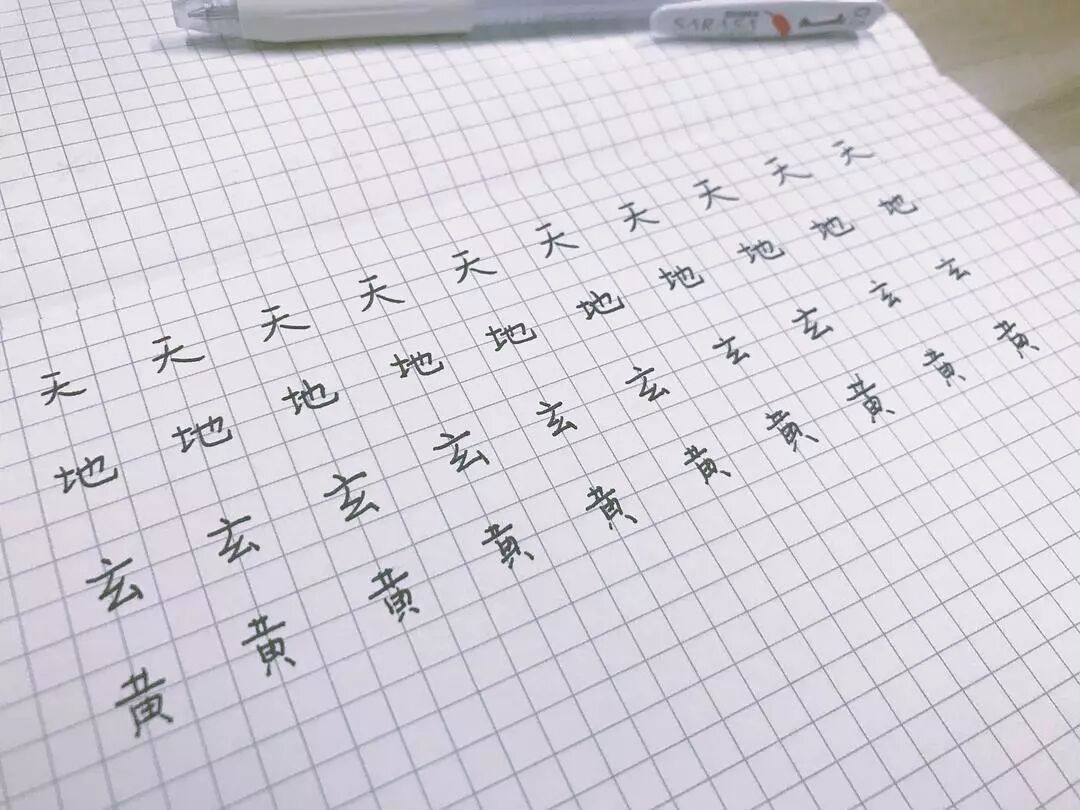 SARASA
天 天 天 天 天 天 天 天 天 天
地 地 地 地 地 地 地 地 地 地
玄 玄 玄 玄 玄 玄 玄 玄 玄 玄
黄 黄 黄 黄 黄 黄 黄 黄 黄 黄